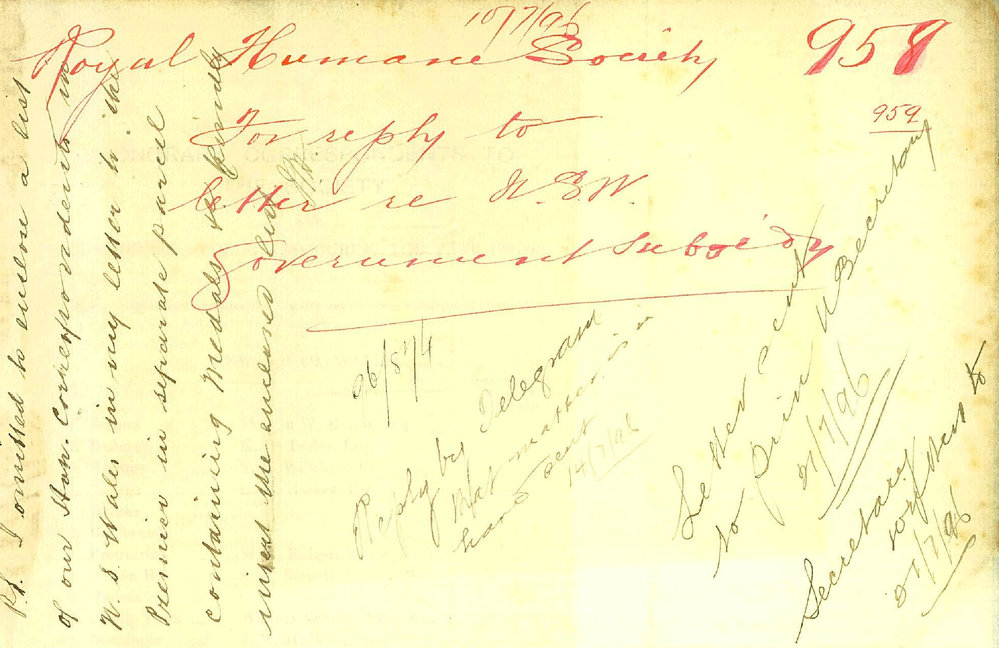 10/7/96
Royal Humane Society 959
959
For reply to
letter re N.S.W.
Government Subsidy
P.S. I omitted to enclose a list
of our Hon. Correspondents in
N. S. Wales in my letter to the
Premier in separate parcel
containing Medals so kindly
insert the enclosed list
Reply by Telegram
that matter is in
hand sent
14/7/96
Letter sent
to Prin U Secretary
21/7/96
Secretary
written to
27/7/96